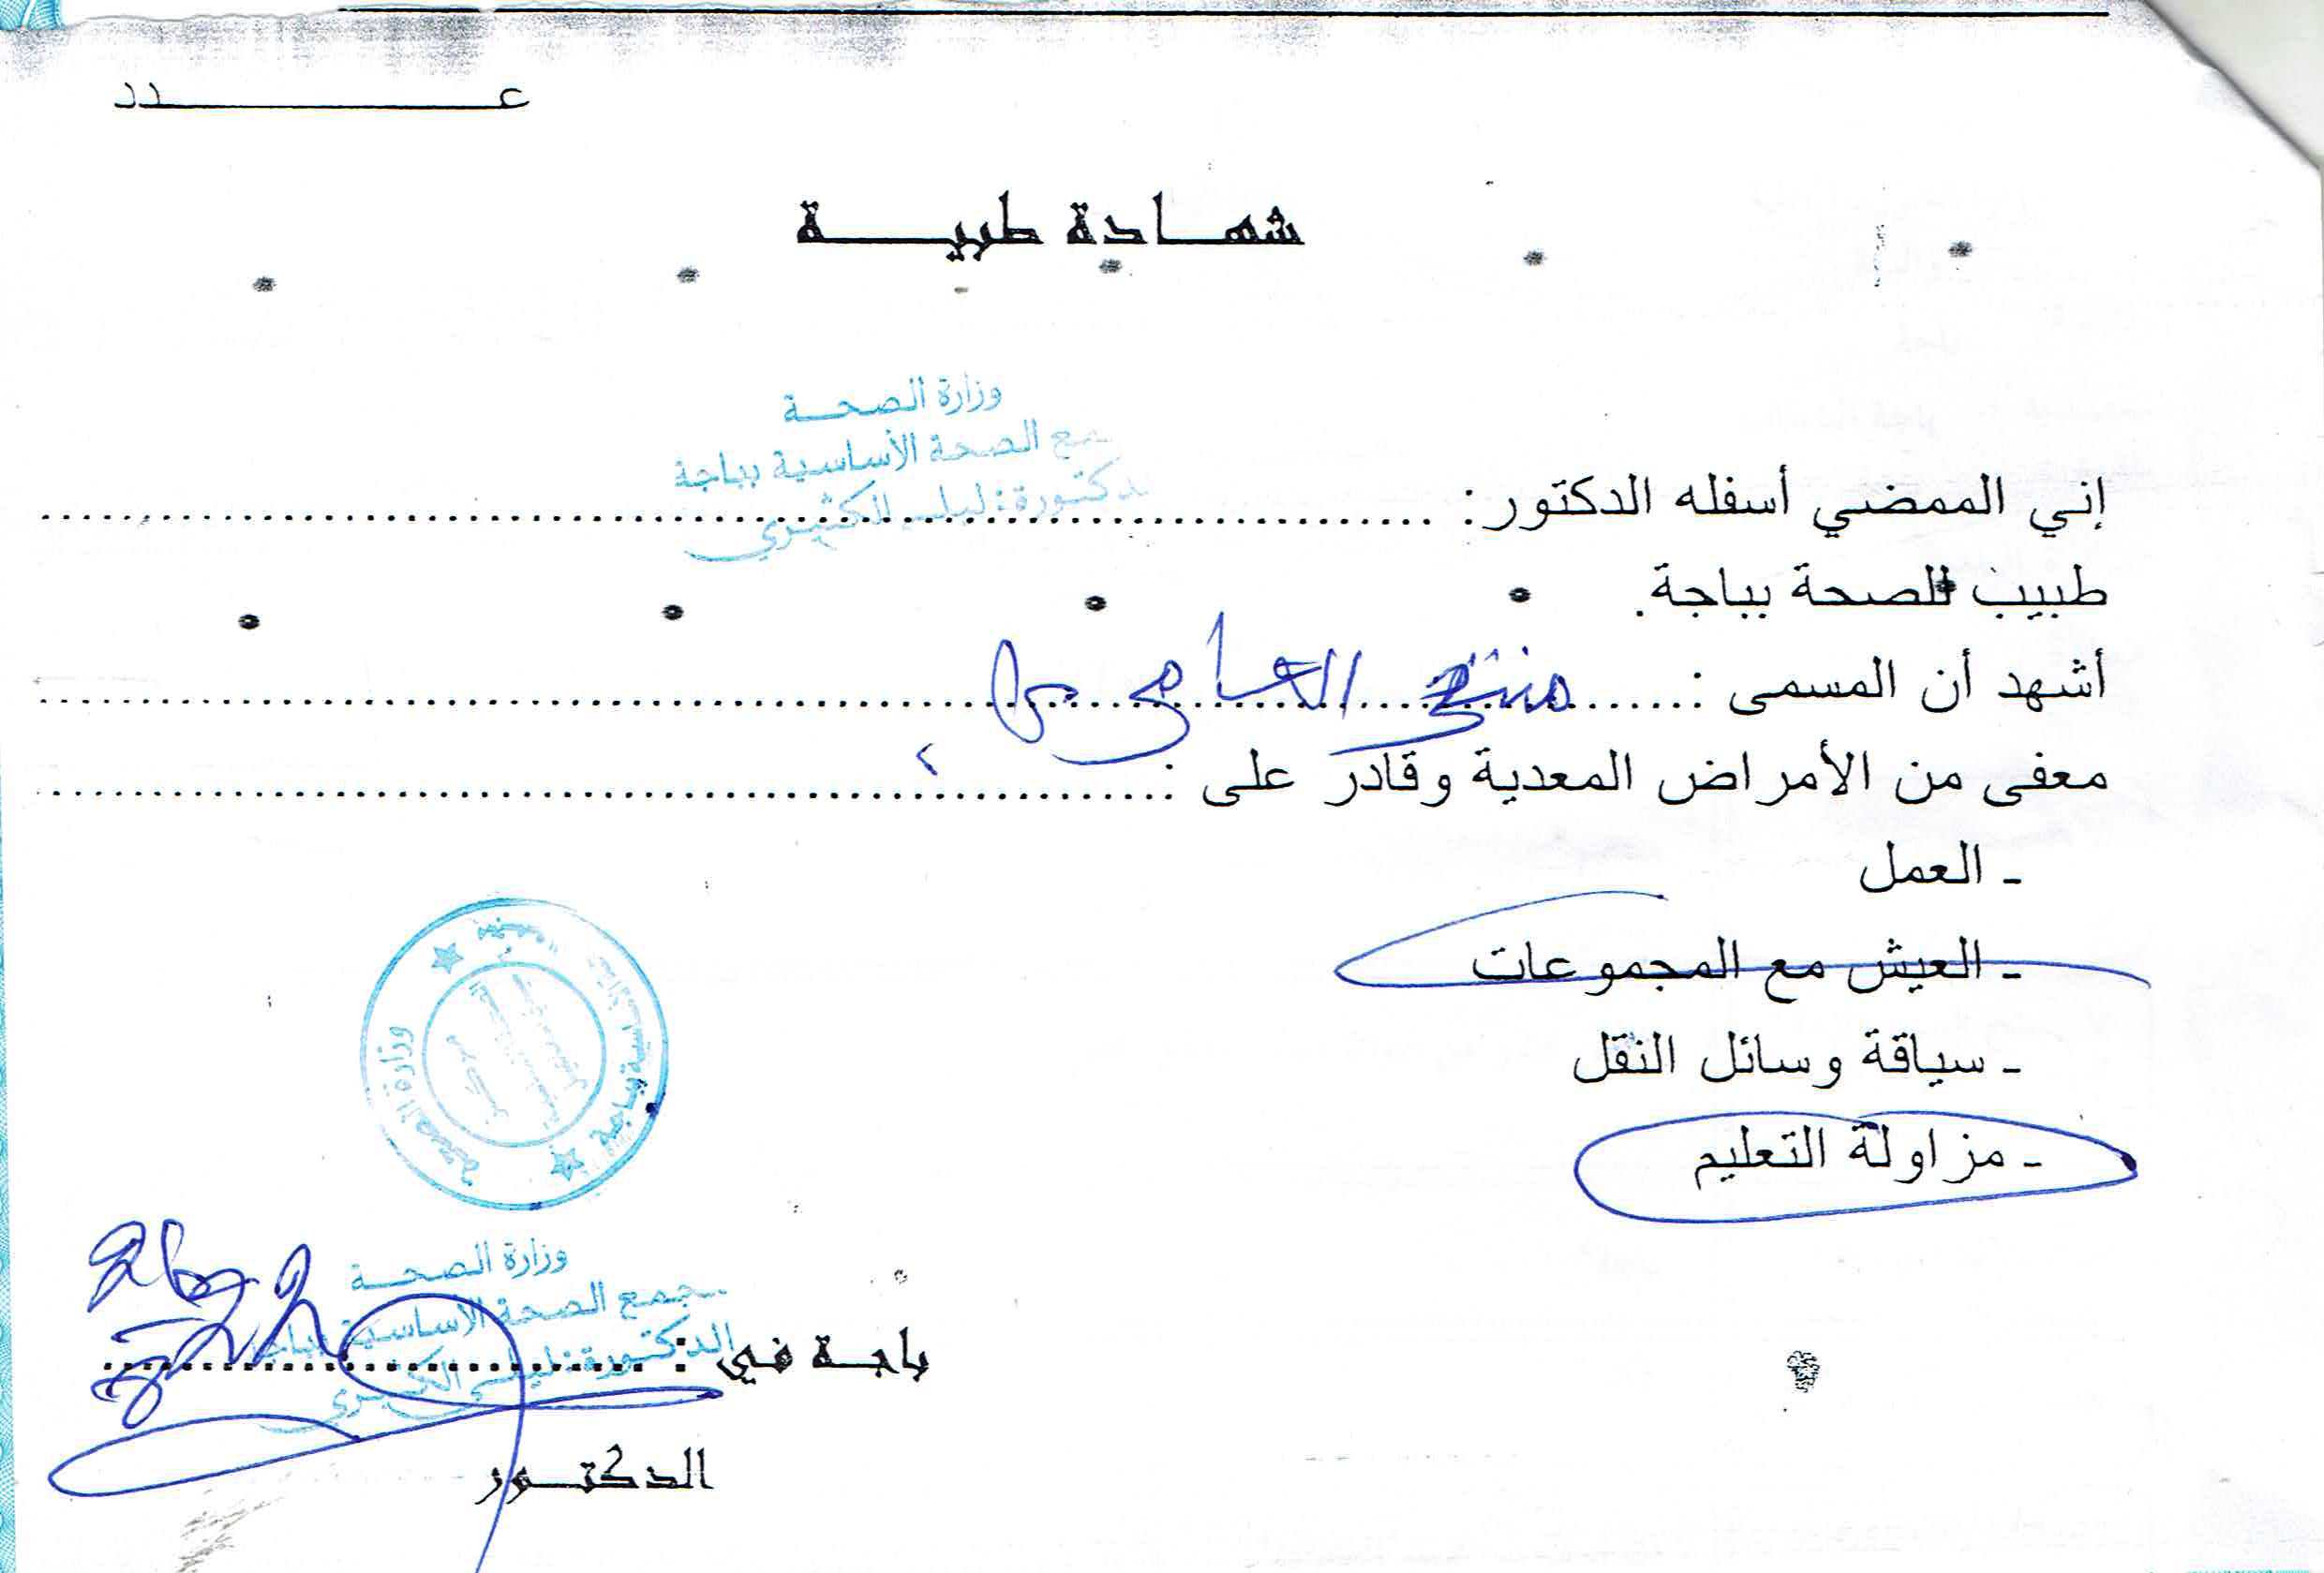 عدد
شهادة طبية
وزارة الصحة
مجمع الصحة الأساسية بباجة
الدكتورة : ليلى الكثيري
إني الممضي أسفله الدكتور: ........................
طبيب للصحة بباجة.
أشهد أن المسمى : ........................
معفى من الأمراض المعدية وقادر على : ........................
- العمل
- العيش مع المجموعات
- سياقة وسائل النقل
- مزاولة التعليم
وزارة الصحة
بباجة
وزارة الصحة
مجمع الصحة الأساسية بباجة
الدكتورة : ليلى الكثيري
باجة في : ........................
الدكتور